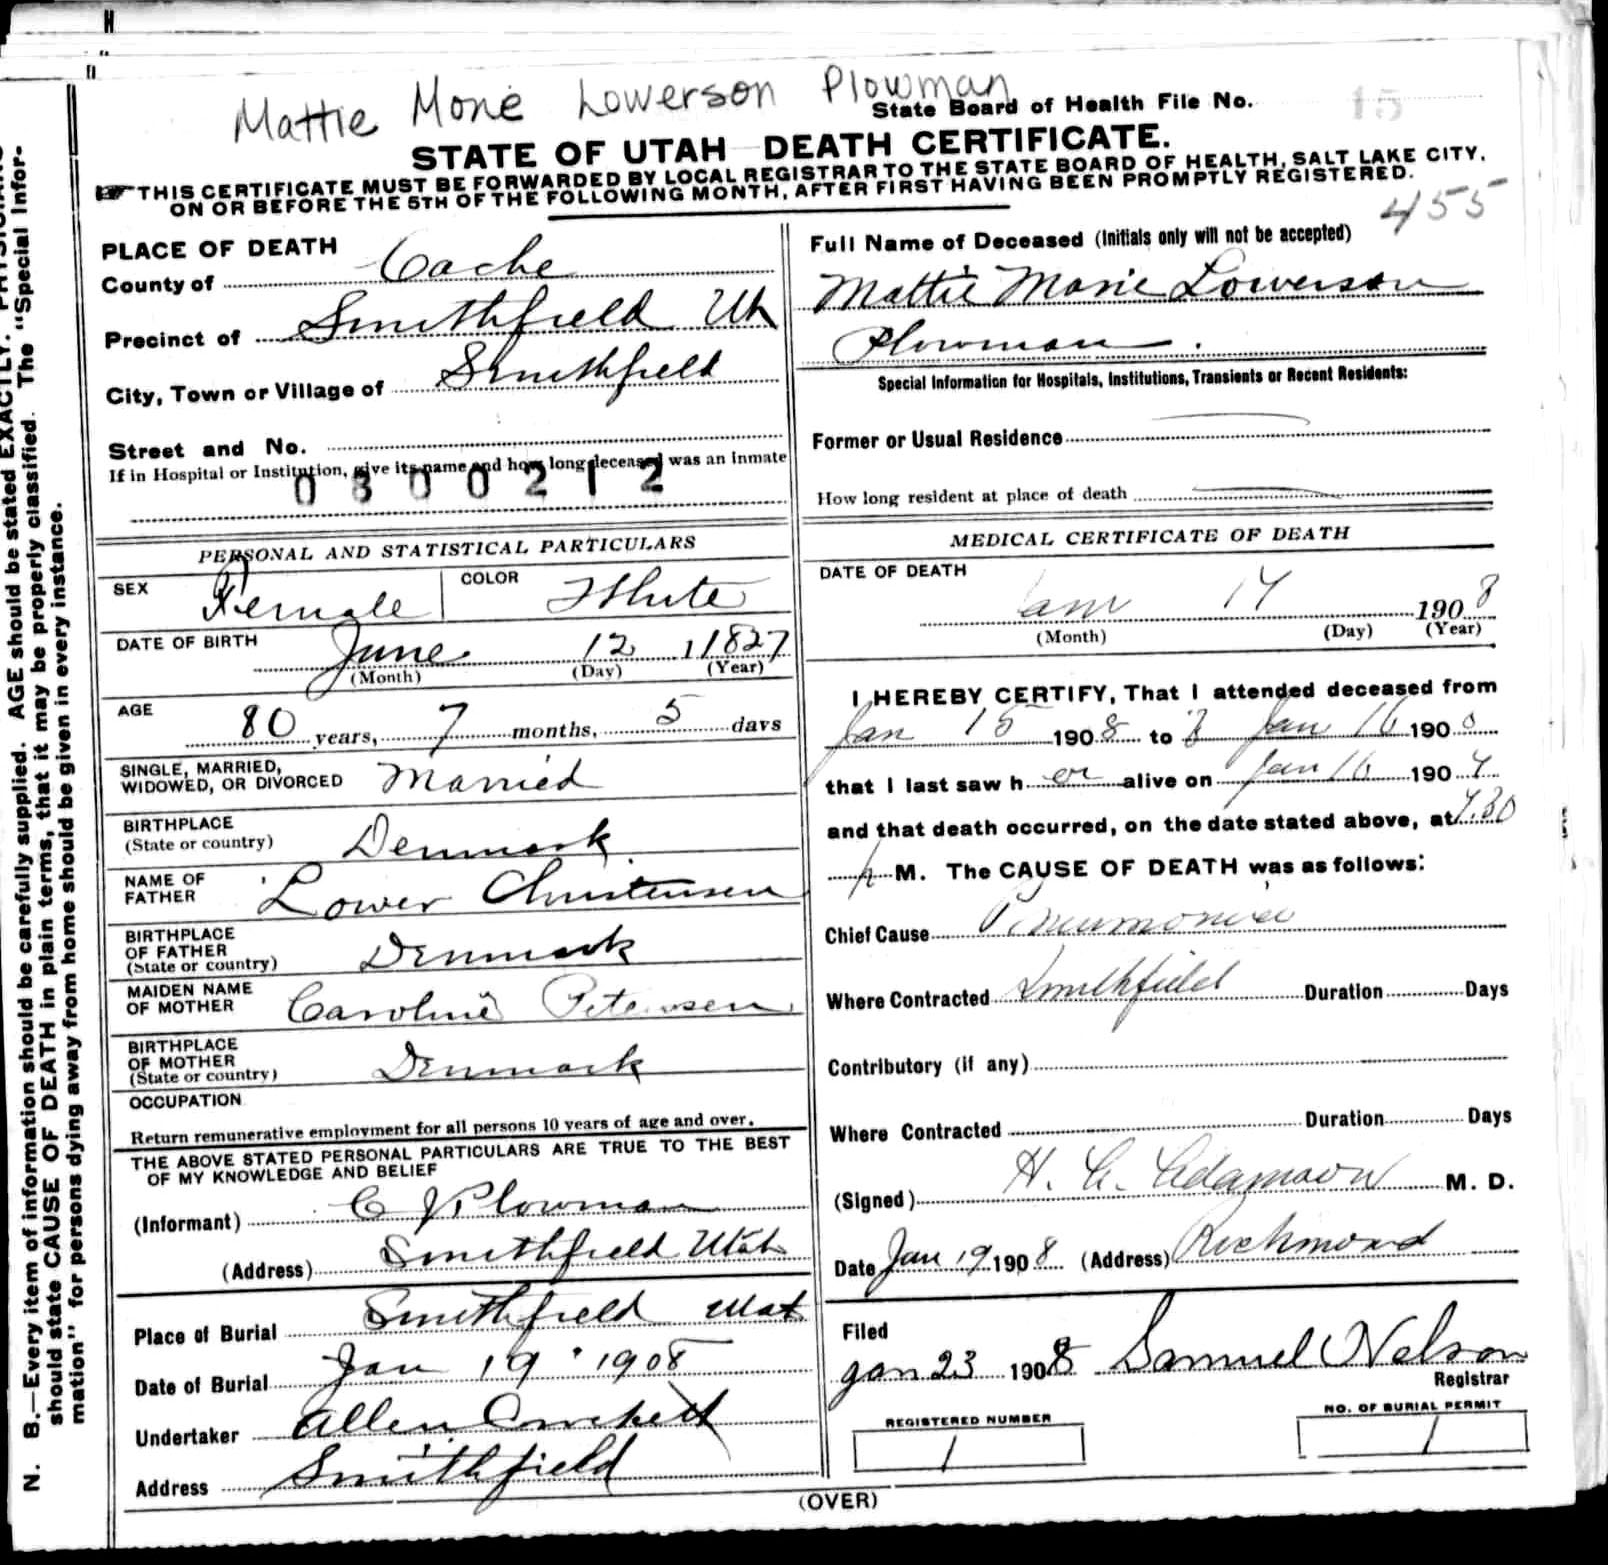 Mattie Mone Lowerson Plowman
State Board of Health File No. 15
STATE OF UTAH DEATH CERTIFICATE.
THIS CERTIFICATE MUST BE FORWARDED BY LOCAL REGISTRAR TO THE STATE BOARD OF HEALTH, SALT LAKE CITY,
ON OR BEFORE THE 5TH OF THE FOLLOWING MONTH, AFTER FIRST HAVING BEEN PROMPTLY REGISTERED.
455
PLACE OF DEATH
County of Cache
Precinct of Smithfield Ut
City, Town or Village of Smithfield
Street and No.
If in Hospital or Institution, give its name and how long deceased was an inmate
0300212
Full Name of Deceased (Initials only will not be accepted)
Mattie Marie Lowerson
Plowman.
Special Information for Hospitals, Institutions, Transients or Recent Residents:
Former or Usual Residence
How long resident at place of death
PERSONAL AND STATISTICAL PARTICULARS
SEX Female COLOR White
DATE OF BIRTH June 12 1827
(Month) (Day) (Year)
AGE 80 years, 7 months, 5 days
SINGLE, MARRIED,
WIDOWED, OR DIVORCED Married
BIRTHPLACE
(State or country) Denmark
NAME OF
FATHER Lower Christensen
BIRTHPLACE
OF FATHER
(State or country) Denmark
MAIDEN NAME
OF MOTHER Caroline Petersen
BIRTHPLACE
OF MOTHER
(State or country) Denmark
OCCUPATION
Return remunerative employment for all persons 10 years of age and over.
THE ABOVE STATED PERSONAL PARTICULARS ARE TRUE TO THE BEST
OF MY KNOWLEDGE AND BELIEF
(Informant) C J Plowman
(Address) Smithfield Utah
Place of Burial Smithfield Utat
Date of Burial Jan 19 1908
Undertaker Allen Crockett
Address Smithfield
MEDICAL CERTIFICATE OF DEATH
DATE OF DEATH
Jan 17 1908
(Month) (Day) (Year)
I HEREBY CERTIFY, That I attended deceased from
Jan 15 1908 to Jan 16 190
that I last saw her alive on Jan 16 190
and that death occurred, on the date stated above, at 7.30
p M. The CAUSE OF DEATH was as follows:
Chief Cause Pneumonia
Where Contracted Smithfield Duration Days
Contributory (if any)
Where Contracted Duration Days
(Signed) H. M. D.
Date Jan 19 1908 (Address) Richmond
Filed
Jan 23 1908 Samuel Nelson
Registrar
REGISTERED NUMBER
1
NO. OF BURIAL PERMIT
1
(OVER)
N. B.—Every item of information should be carefully supplied. AGE should be stated EXACTLY.
should state CAUSE OF DEATH in plain terms, that it may be properly classified. The "Special Infor-
mation" for persons dying away from home should be given in every instance.